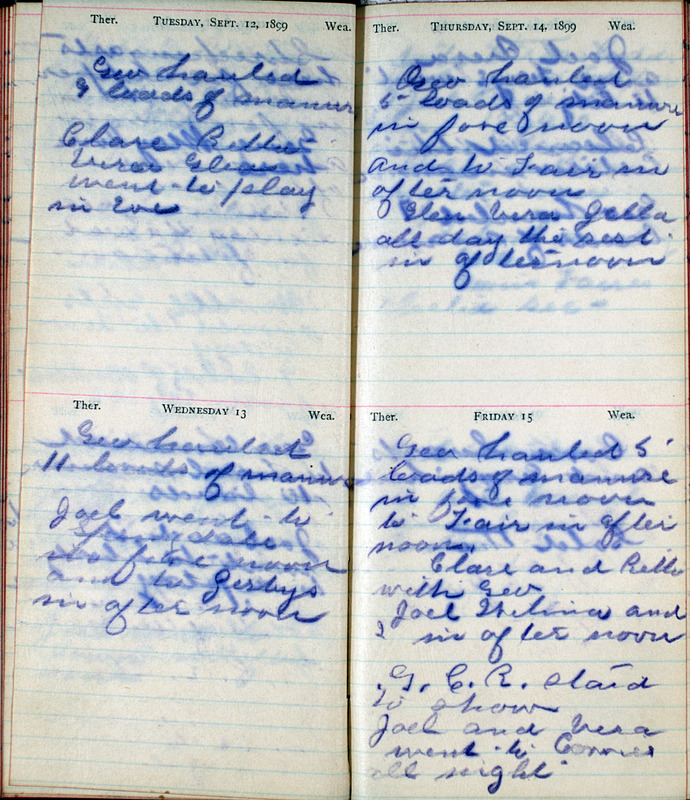 Ther. TUESDAY, SEPT. 12, 1899 Wea.
Geo hauled
9 loads of manure
Clare Retta
Vera Glen
went to play
in Eve
Ther. WEDNESDAY 13 Wea.
Geo hauled
11 loads of manure
Joel went to
in fore noon
and to Gerbys
in after noon
Ther. THURSDAY, SEPT. 14, 1899 Wea.
Geo hauled
5 loads of manure
in fore noon
and to Fair in
after noon
Glen Vera Zella
all day the rest
in after noon
Ther. FRIDAY 15 Wea.
Geo hauled 5
loads of manure
in fore noon
to Fair in after
noon.
Clare and Retta
with Geo
Joel and
I in after noon
G. C. R. staid
to show
Joel and Vera
went to
all night